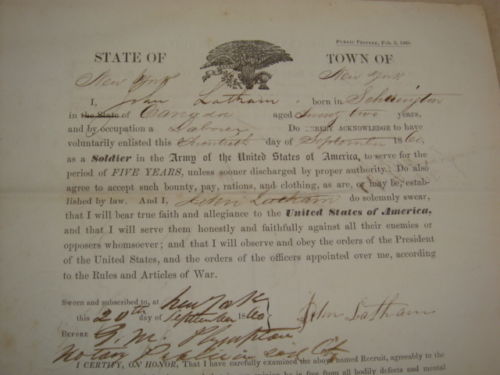 STATE OF TOWN OF
New York New York
I, John Latham born in
in the State of aged twenty two years,
and by occupation a Laborer Do HEREBY ACKNOWLEDGE to have
voluntarily enlisted this day of September 1860,
as a Soldier in the Army of the United States of America, to serve for the
period of FIVE YEARS, unless sooner discharged by proper authority. Do also
agree to accept such bounty, pay, rations, and clothing, as are, or may be, estab-
lished by law. And I, John Latham do solemnly swear,
that I will bear true faith and allegiance to the United States of America,
and that I will serve them honestly and faithfully against all their enemies or
opposers whomsoever; and that I will observe and obey the orders of the President
of the United States, and the orders of the officers appointed over me, according
to the Rules and Articles of War.
Sworn and subscribed to, at New York
this 20th day of September 1860
John Latham
BEFORE
Notary Public in
I CERTIFY, ON HONOR, That I have carefully examined the above named Recruit, agreeably to the